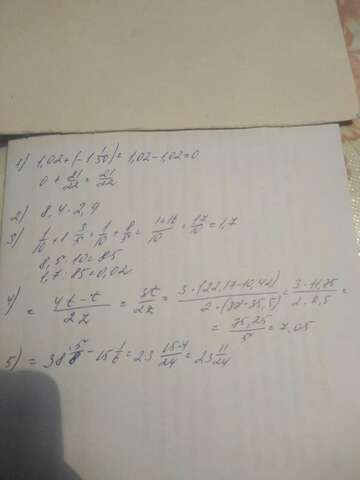 1) 1,02+(-1 1/50)=1,02-1,02=0
0+21/22=21/22
2) 8,4-2,9
3) 1/10+1 3/5=1/10+8/5=1+16/10=17/10=1,7
8,5·10=85
1,7:85=0,02
4) = 4t-t/2z = 3t/2z = 3·(22,17-10,42)/2·(38-35,5) = 3·11,75/2·2,5 =
= 35,25/5 = 7,05
5) = 38 5/8 - 15 1/6 = 23 15-4/24 = 23 11/24